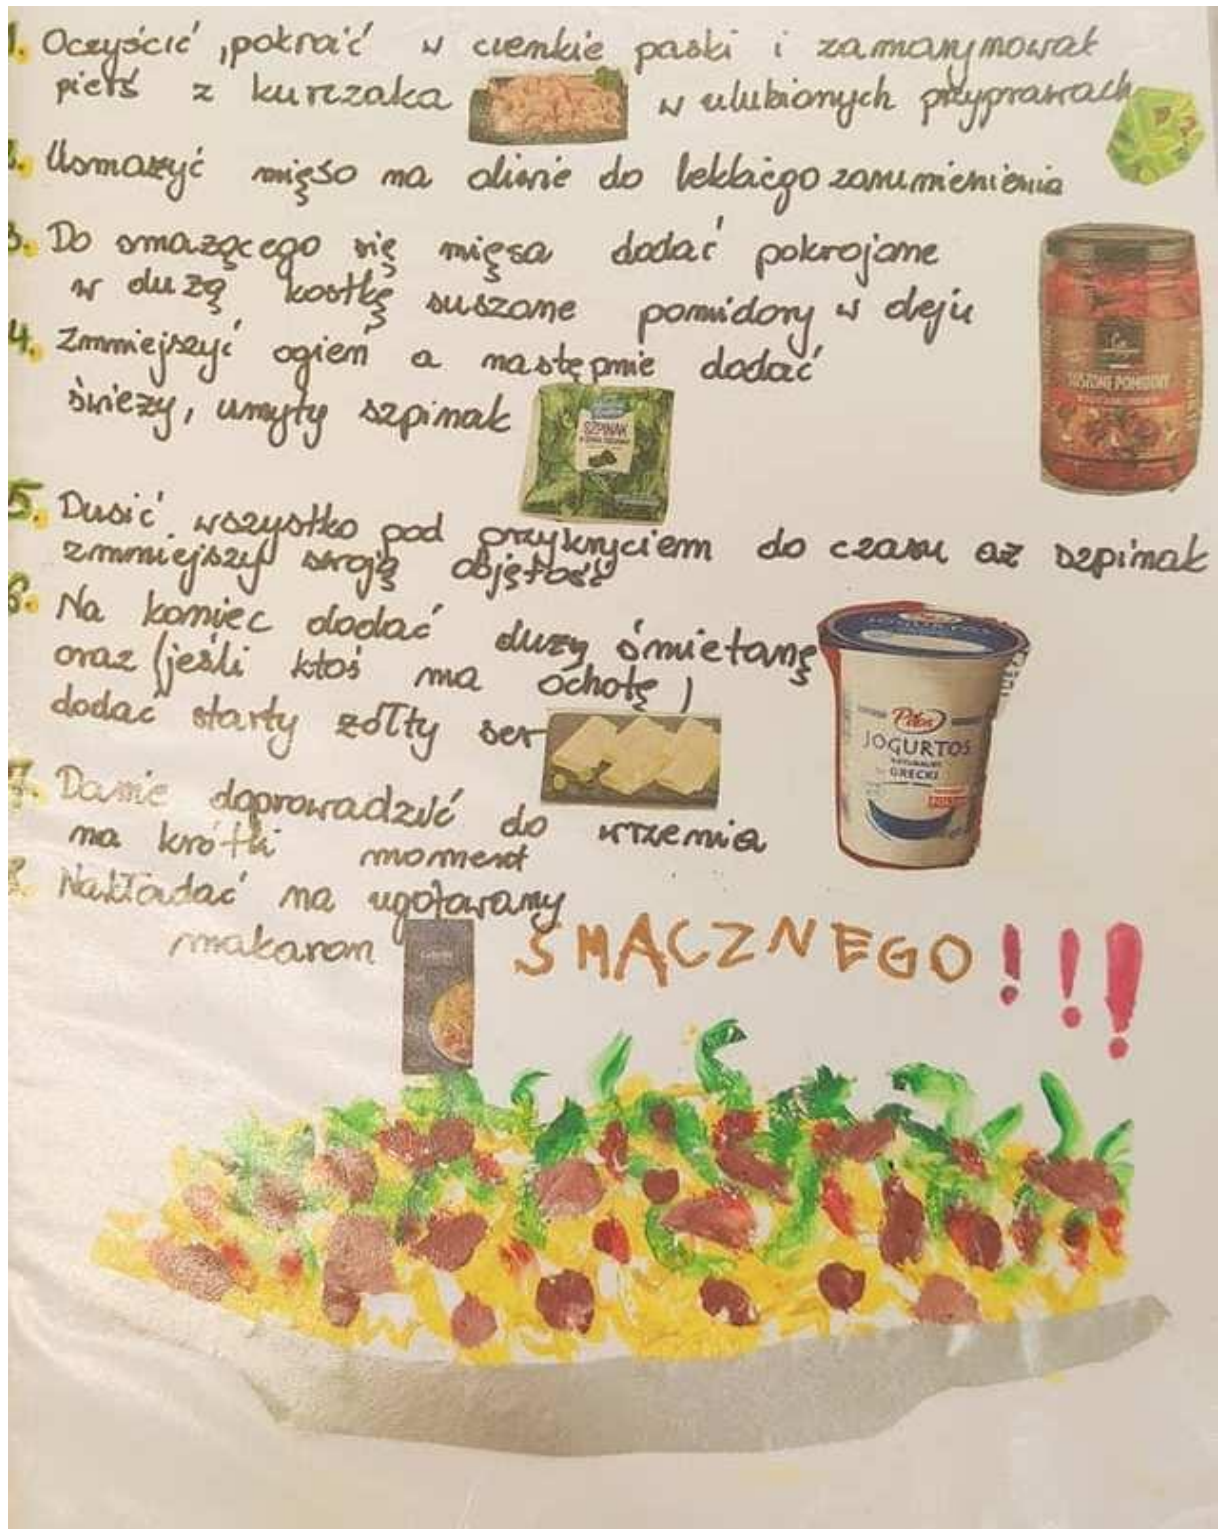 1. Oczyścić, pokroić w cienkie paski i zamarynować
pierś z kurczaka w ulubionych przyprawach
2. Usmażyć mięso na oliwie do lekkiego zarumienienia
3. Do smażącego się mięsa dodać pokrojone
w dużą kostkę suszone pomidory w oleju
SUSZONE POMIDORY
4. Zmniejszyć ogień a następnie dodać
świeży, umyty szpinak
SZPINAK
5. Dusić wszystko pod przykryciem do czasu aż szpinak
zmniejszy swoją objętość
6. Na koniec dodać dużą śmietanę
oraz (jeśli ktoś ma ochotę)
dodać starty żółty ser
Pilos
JOGURTOS
NATURALNY
GRECKI
7. Danie doprowadzić do wrzenia
na krótki moment
8. Nakładać na ugotowany
makaron
SMACZNEGO!!!